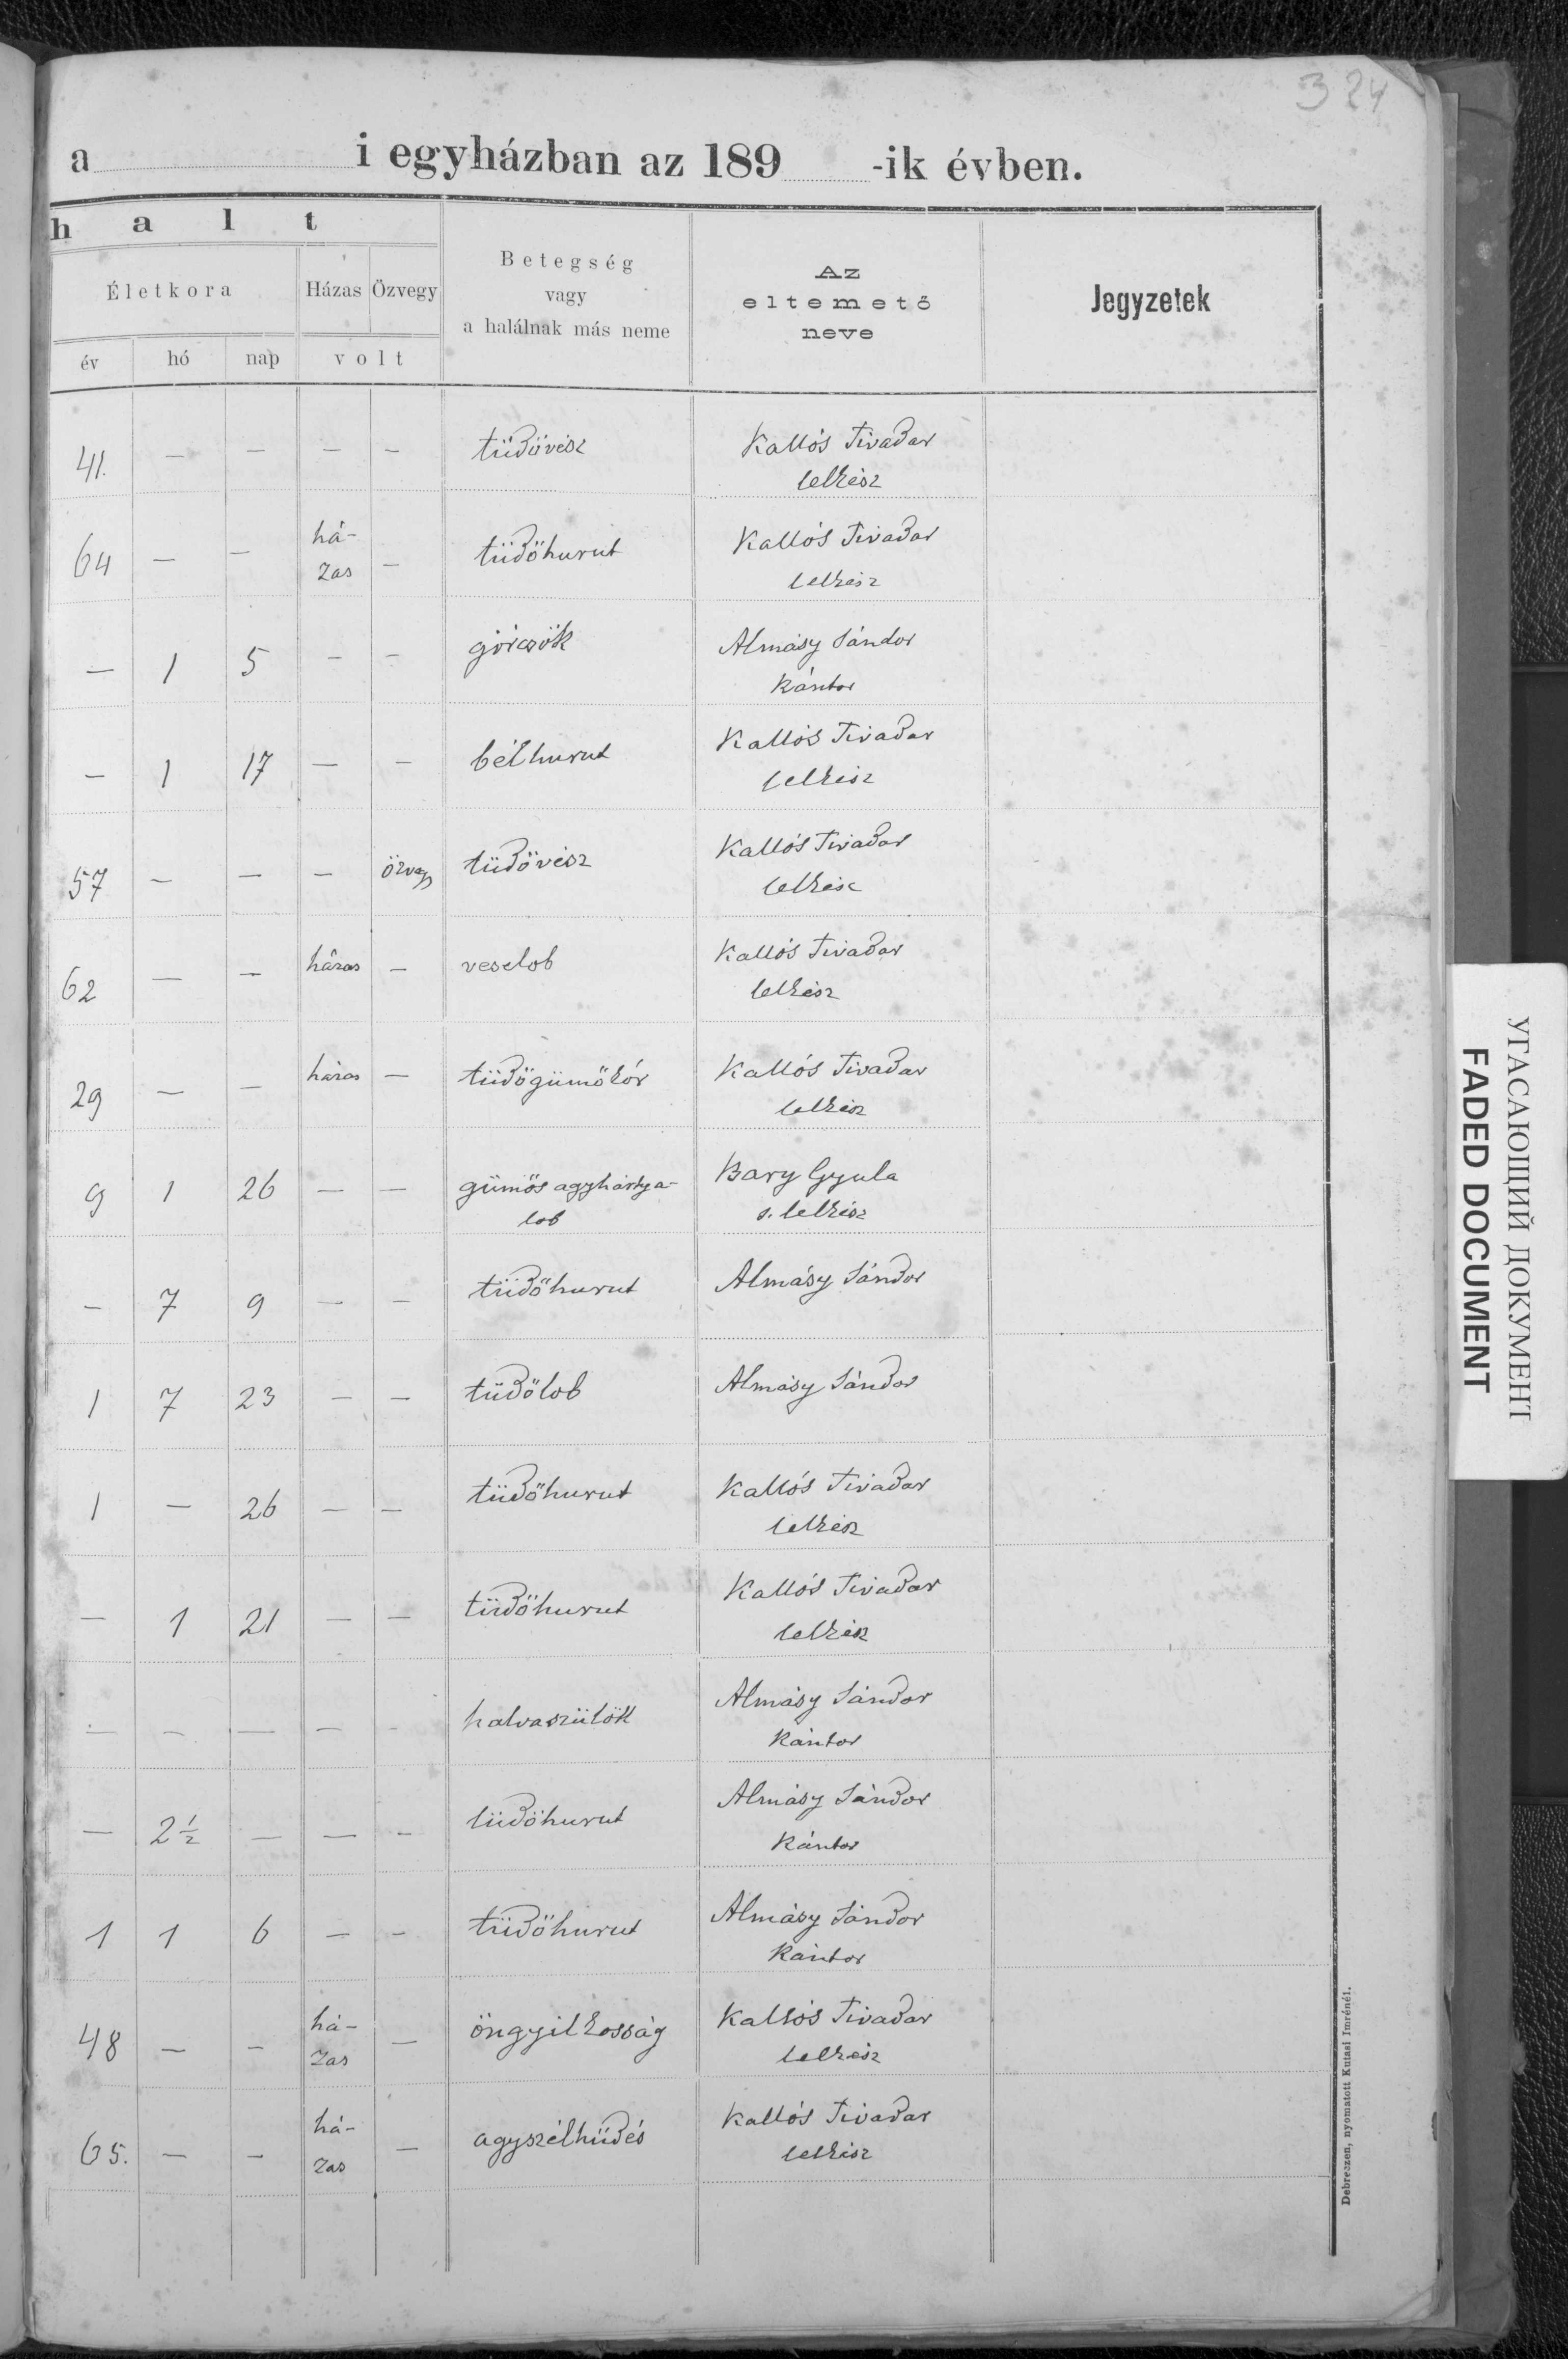 324
a i egyházban az 189 -ik évben.
h a l t
Életkora
Házas Özvegy
Betegség
vagy
a halálnak más neme
Az
eltemető
neve
Jegyzetek
év hó nap volt
41. — — — — tüdővész Kallós Tivadar
lelkész
64 — — há- — tüdőhurut Kallós Tivadar
zas lelkész
— 1 5 — — görcsök Almásy Sándor
kántor
— 1 17 — — bélhurut Kallós Tivadar
lelkész
57 — — — özvegy tüdővész Kallós Tivadar
lelkész
62 — — házas — veselob Kallós Tivadar
lelkész
29 — — házas — tüdőgümőkór Kallós Tivadar
lelkész
9 1 26 — — gümős agyhártya- Bary Gyula
lob s. lelkész
— 7 9 — — tüdőhurut Almásy Sándor
1 7 23 — — tüdőlob Almásy Sándor
1 — 26 — — tüdőhurut Kallós Tivadar
lelkész
— 1 21 — — tüdőhurut Kallós Tivadar
lelkész
— — — — — halvaszülött Almásy Sándor
kántor
— 2½ — — — tüdőhurut Almásy Sándor
kántor
1 1 6 — — tüdőhurut Almásy Sándor
kántor
48 — — há- — öngyilkosság Kallós Tivadar
zas lelkész
65. — — há- — agyszélhüdés Kallós Tivadar
zas lelkész
Debreczen, nyomatott Kutasi Imrénél.
УГАСАЮЩИЙ ДОКУМЕНТ
FADED DOCUMENT